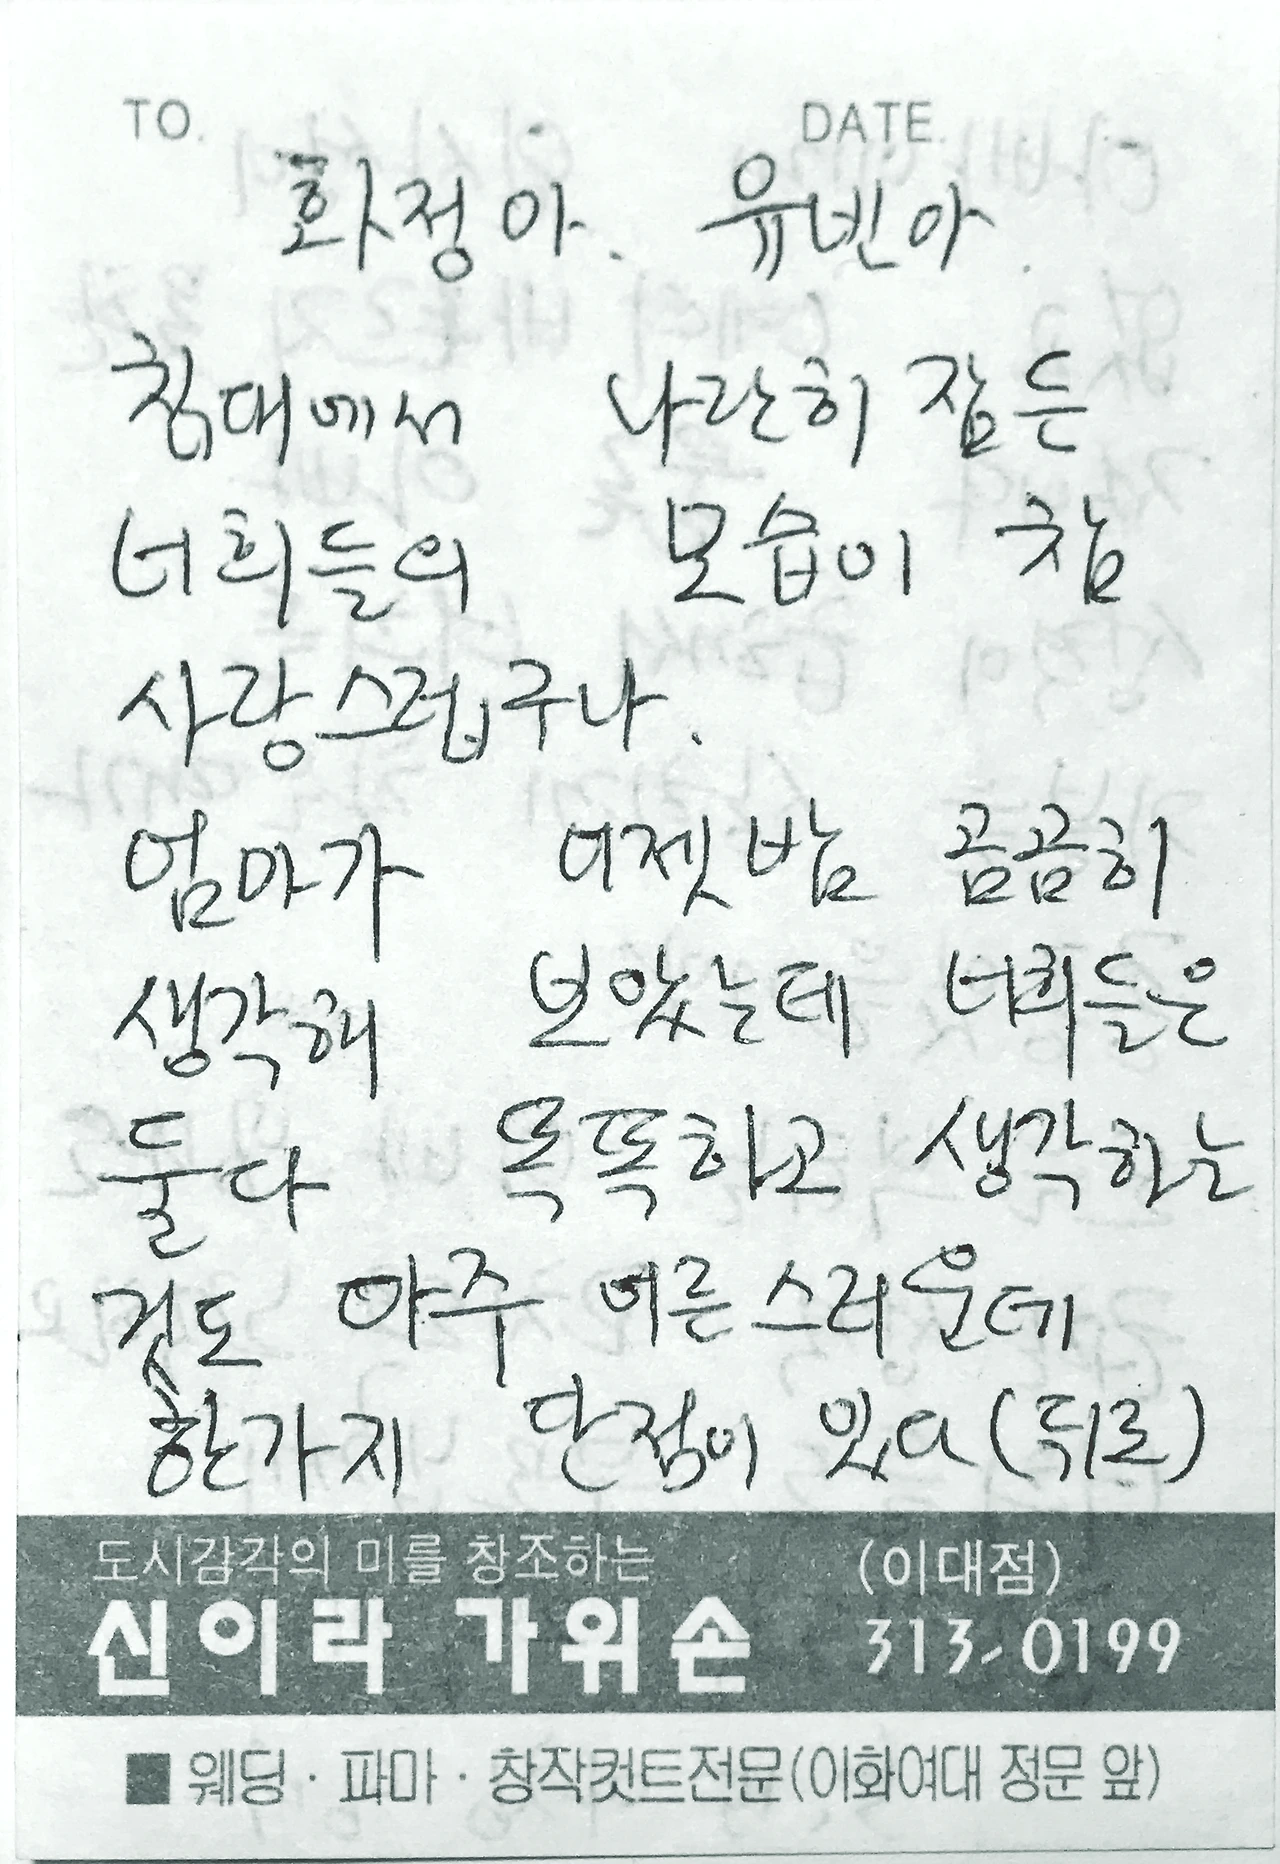 TO. DATE.
화정아. 유빈아.
침대에서 나란히 잠든
너희들의 모습이 참
사랑스럽구나.
엄마가 어젯밤 곰곰히
생각해 보았는데 너희들은
둘다 똑똑하고 생각하는
것도 아주 어른스러운데
한가지 단점이 있다(뒤로)
도시감각의 미를 창조하는 (이대점)
신이락 가위손 313-0199
■ 웨딩·파마·창작컷트전문(이화여대 정문 앞)